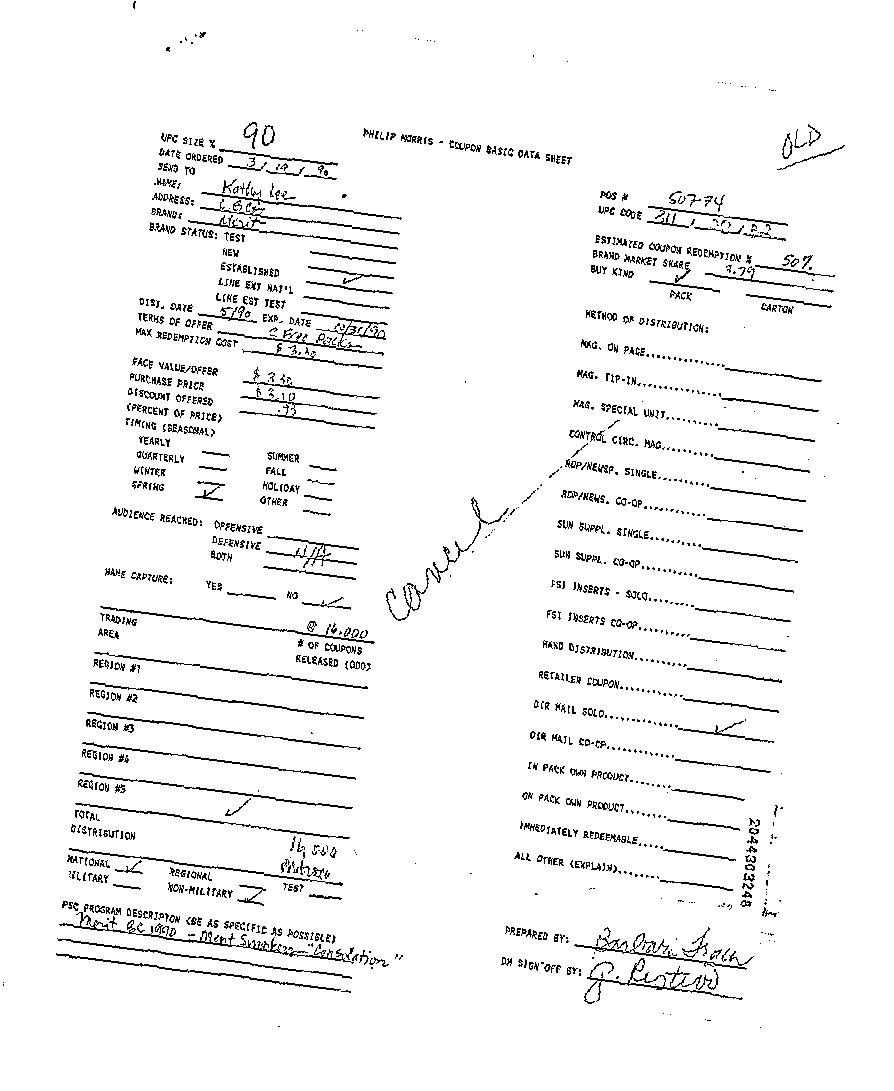 OLD
PHILIP MORRIS - COUPON BASIC DATA SHEET
UPC SIZE % 90
DATE ORDERED 3 / 19 / 90
SEND TO
NAME: Kathy Lee
ADDRESS:
BRAND: Merit
BRAND STATUS: TEST
NEW
ESTABLISHED ✓
LINE EXT NAT'L
LINE EST TEST
DIST. DATE 5/90 EXP. DATE 10/31/90
TERMS OF OFFER 2 Free Packs
MAX REDEMPTION COST $ 3.30
FACE VALUE/OFFER $ 3.30
PURCHASE PRICE $ 3.10
DISCOUNT OFFERED
(PERCENT OF PRICE)
TIMING (SEASONAL)
YEARLY
QUARTERLY SUMMER
WINTER FALL
SPRING ✓ HOLIDAY
OTHER
AUDIENCE REACHED: OFFENSIVE
DEFENSIVE N/A
BOTH
NAME CAPTURE: YES NO ✓
TRADING @ 16,000
AREA # OF COUPONS
RELEASED (000)
REGION #1
REGION #2
REGION #3
REGION #4
REGION #5
TOTAL ✓
DISTRIBUTION
NATIONAL ✓ REGIONAL
MILITARY NON-MILITARY ✓ TEST
PSC PROGRAM DESCRIPTON (BE AS SPECIFIC AS POSSIBLE)
Merit BC 1990 - Merit Smokers - "Consolation"
Cancel
POS # 50774
UPC CODE
ESTIMATED COUPON REDEMPTION % 50%
BRAND MARKET SHARE 3.79
BUY KIND ✓
PACK CARTON
METHOD OF DISTRIBUTION:
MAG. ON PAGE
MAG. TIP-IN
MAG. SPECIAL UNIT
CONTROL CIRC. MAG
ROP/NEWSP. SINGLE
ROP/NEWS. CO-OP
SUN SUPPL. SINGLE
SUN SUPPL. CO-OP
FSI INSERTS - SOLO
FSI INSERTS CO-OP
HAND DISTRIBUTION
RETAILER COUPON
DIR MAIL SOLO ✓
DIR MAIL CO-OP
IN PACK OWN PRODUCT
ON PACK OWN PRODUCT
IMMEDIATELY REDEEMABLE
ALL OTHER (EXPLAIN)
2044303248
PREPARED BY: Barbara
DM SIGN OFF BY: G. Restivo